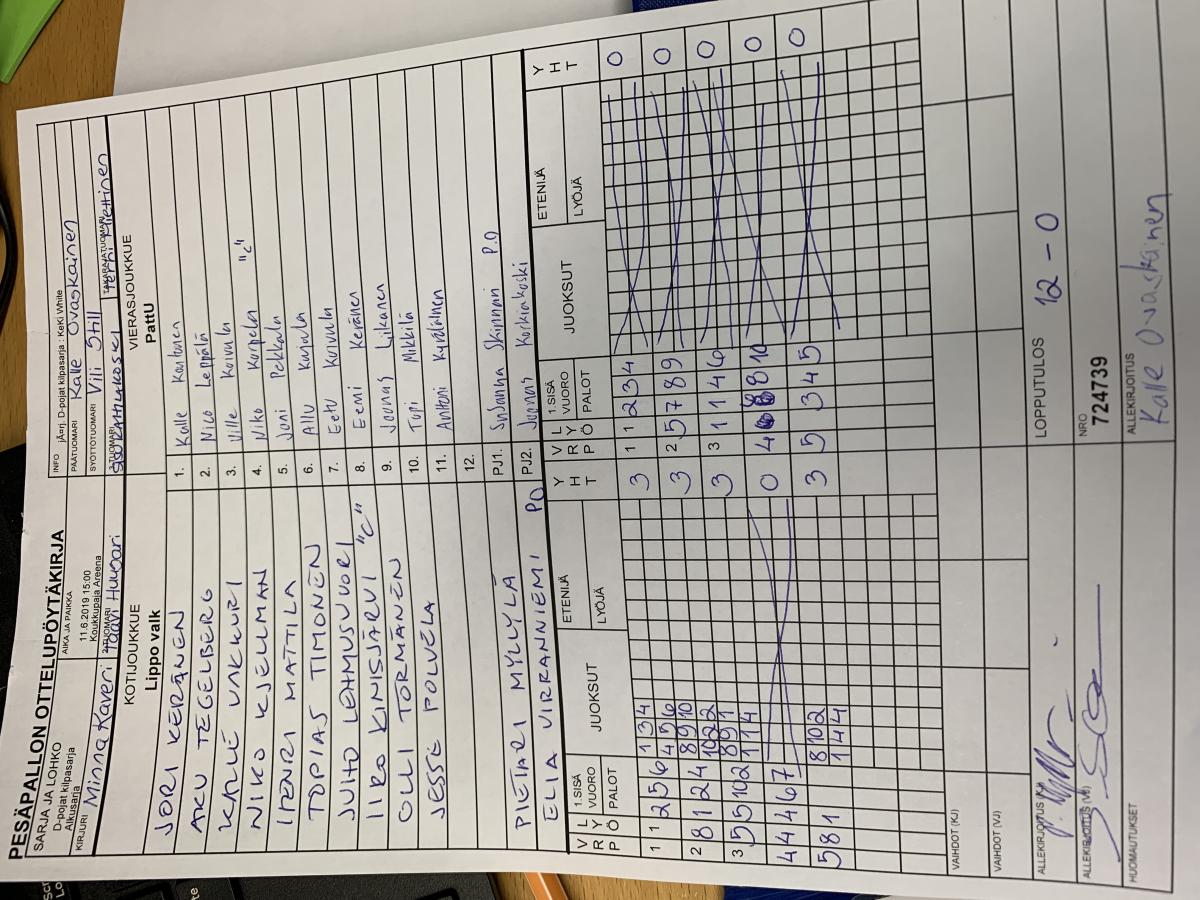 PESÄPALLON OTTELUPÖYTÄKIRJA
SARJA JA LOHKO
D-pojat kilpasarja
Alkusarja
AIKA JA PAIKKA
11.6.2019 15:00
Koukkupaja Areena
INFO jÄ¤rj. D-pojat kilpasarja : KeKi White
PÄÄTUOMARI Kalle Ovaskainen
SYÖTTÖTUOMARI Vili Still
KIRJURI Minna Kaveri
2-TUOMARI Paavi Huupari
KOTIJOUKKUE
VIERASJOUKKUE
Lippo valk
PattU
JORI KERÄNEN 1. Kalle Koutonen
AKU TEGELBERG 2. Nico Leppälä
KALLE VAKKURI 3. Ville Koivula
NIKO KJELLMAN 4. Niko Korpela "C"
HENRI MATTILA 5. Joni Pekkala
TOPIAS TIMONEN 6. Allu Kurjula
JUHO LEHMUSVUORI 7. Eetu Koivula
IIRO KINISJÄRVI "C" 8. Eemi Keränen
OLLI TÖRMÄNEN 9. Joonas Liikanen
JESSE POLVELA 10. Topi Mikkilä
11. Anttoni Kyrölälnen
12.
PIETARI MYLLYLÄ PJ1. Susanna Skinnari P.O
ELIA VIRRANNIEMI PO PJ2. Joonas Korkiakoski
V R P L Y Ö 1.SISÄ VUORO PALOT JUOKSUT ETENIJÄ LYÖJÄ Y H T V R P L Y Ö 1.SISÄ VUORO PALOT JUOKSUT ETENIJÄ LYÖJÄ Y H T
1 1 2 5 6 1 3 4 3 1 1 2 3 4 0
4 5 6
2 8 1 2 4 8 9 10 3 2 5 7 8 9 0
10 2 2
3 5 5 10 2 8 9 1 3 3 1 1 4 6 0
1 1 4
4 4 4 6 7 0 4 8 8 10 0
5 8 1 8 10 2 3 5 3 4 5 0
1 4 4
VAIHDOT (KJ)
VAIHDOT (VJ)
ALLEKIRJOITUS (KJ)
LOPPUTULOS 12 - 0
ALLEKIRJOITUS (VJ)
NRO
724739
HUOMAUTUKSET
ALLEKIRJOITUS
Kalle Ovaskainen